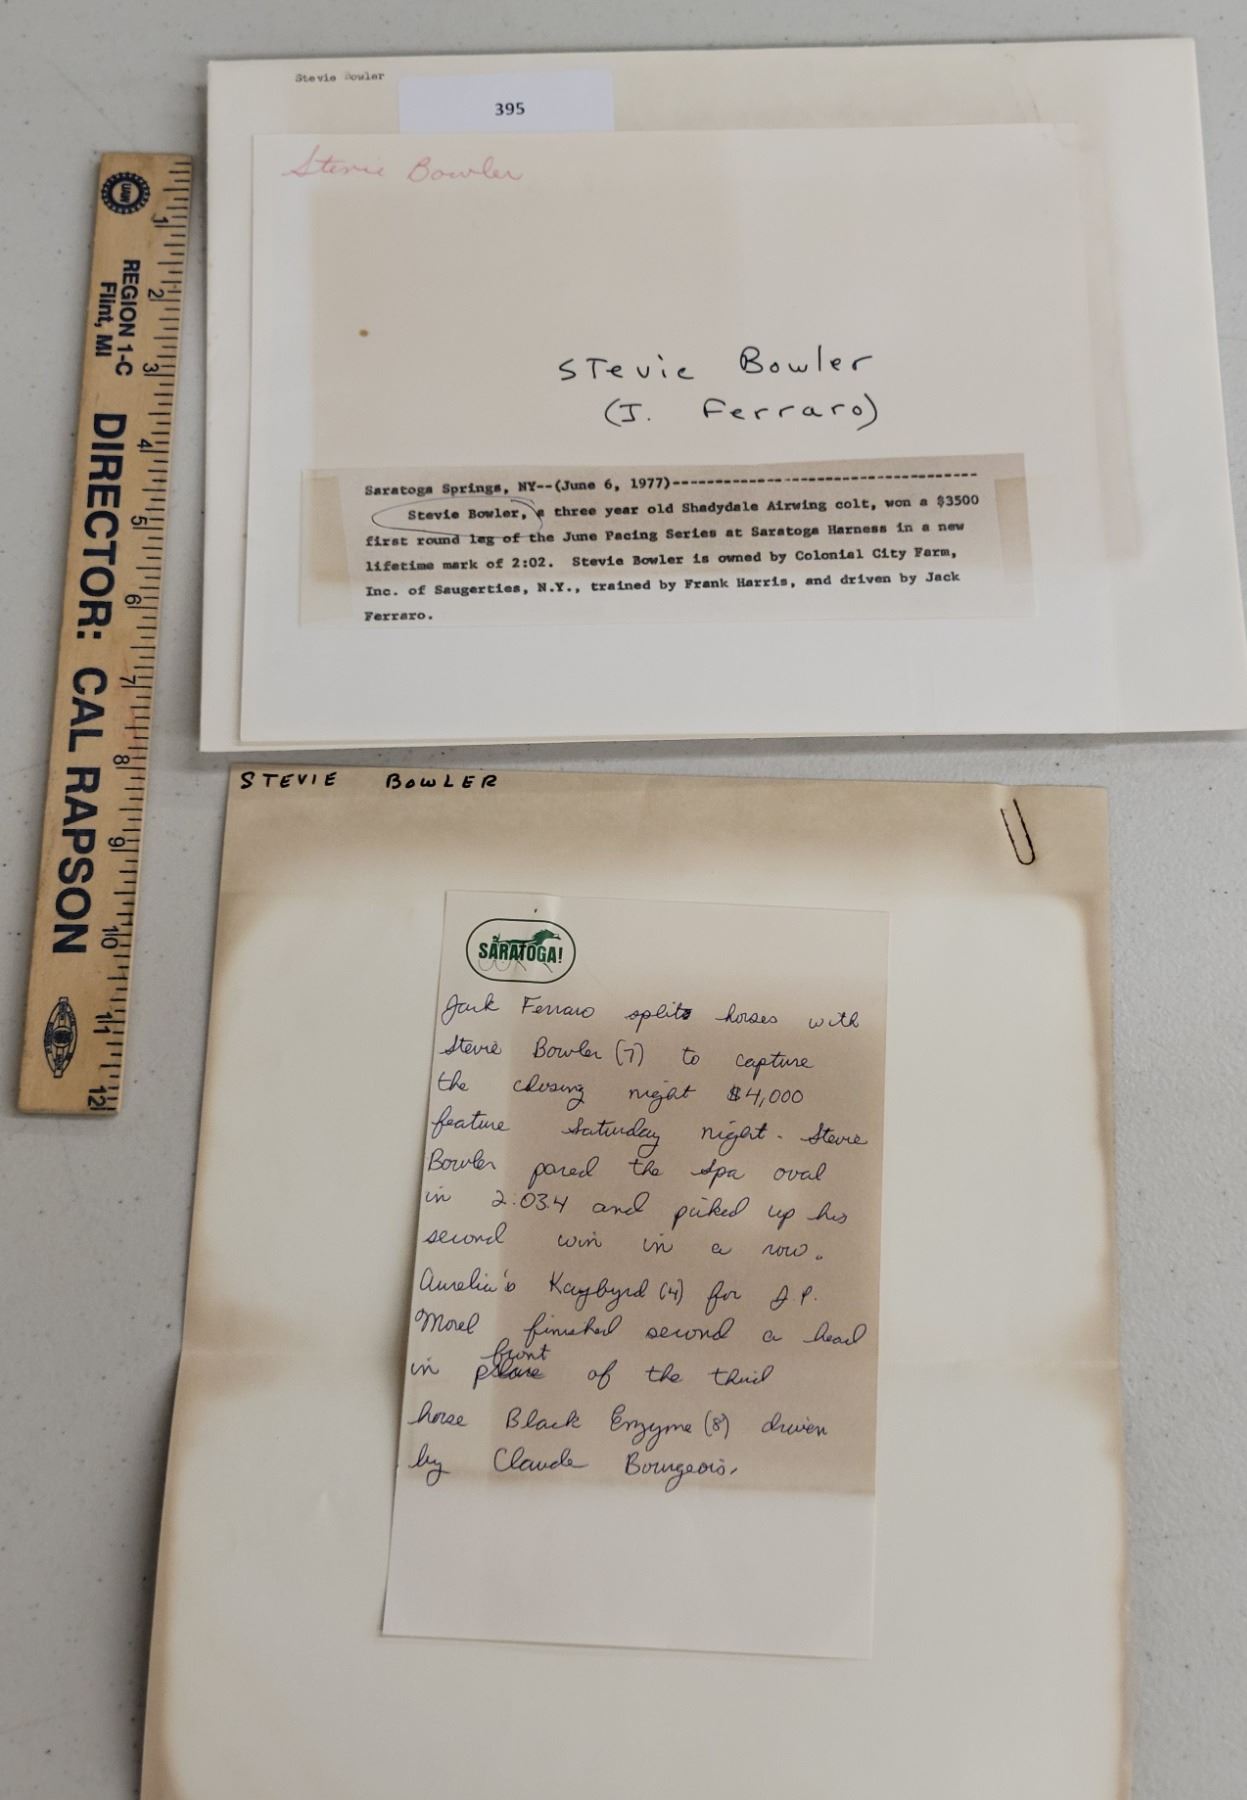 Stevie Bowler
395
Stevie Bowler
Stevie Bowler
(J. Ferraro)
Saratoga Springs, NY--(June 6, 1977)-------------------------------------
Stevie Bowler, a three year old Shadydale Airwing colt, won a $3500
first round leg of the June Pacing Series at Saratoga Harness in a new
lifetime mark of 2:02. Stevie Bowler is owned by Colonial City Farm,
Inc. of Saugerties, N.Y., trained by Frank Harris, and driven by Jack
Ferraro.
UAW
REGION 1-C
Flint, MI
DIRECTOR: CAL RAPSON
1 2 3 4 5 6 7 8 9 10 11 12
STEVIE BOWLER
SARATOGA!
Jack Ferraro splits horses with
Stevie Bowler (7) to capture
the closing night $4,000
feature Saturday night. Stevie
Bowler paced the Spa oval
in 2:03.4 and picked up his
second win in a row.
Aurelia's Kaybyrd (4) for J.P.
Morel finished second a head
in front of the third
horse Black Enzyme (8) driven
by Claude Bourgeois.